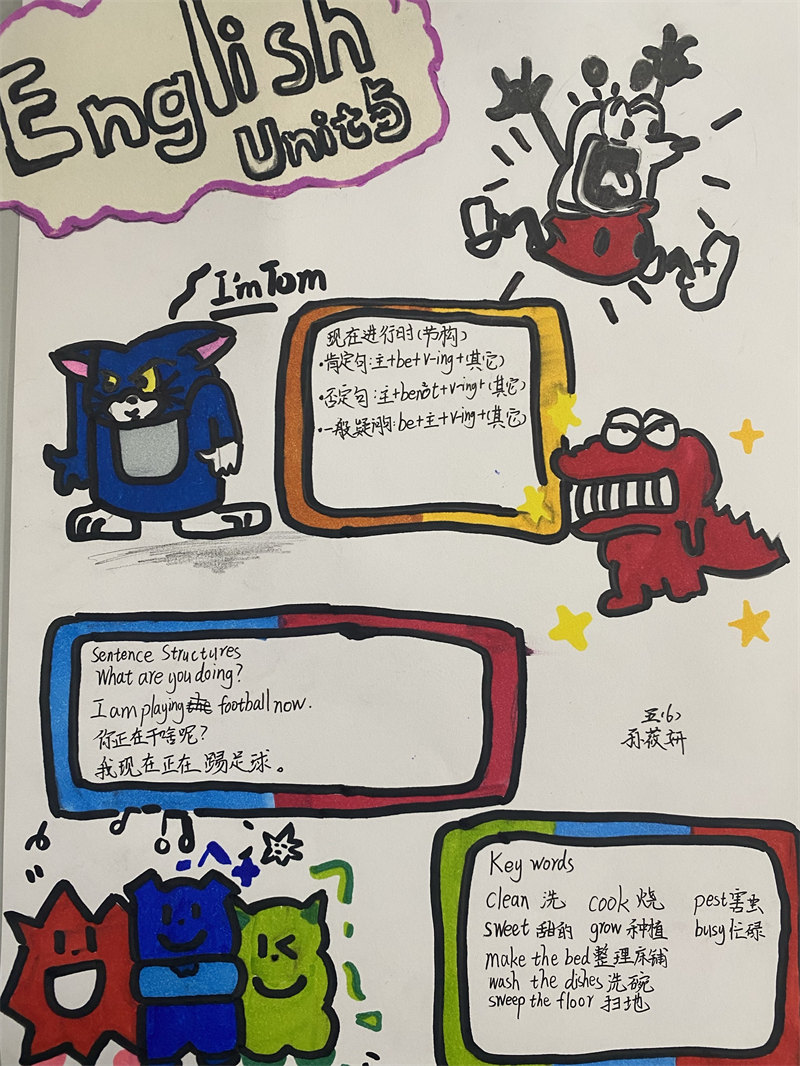 English
Unit5
I'm Tom
现在进行时(节构)
·肯定句:主+be+v-ing+(其它)
·否定句:主+benot+v-ing+(其它)
·一般疑问句:be+主+v-ing+(其它)
Sentence Structures
What are you doing?
I am playing the football now.
你正在干啥呢?
我现在正在踢足球。
五(6)
孙莜妍
Key words
clean 洗 cook 烧 pest害虫
sweet 甜的 grow 种植 busy忙碌
make the bed整理床铺
wash the dishes洗碗
sweep the floor 扫地